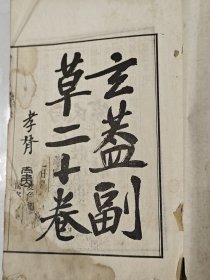 玄蓋副
草二十卷
孝胥